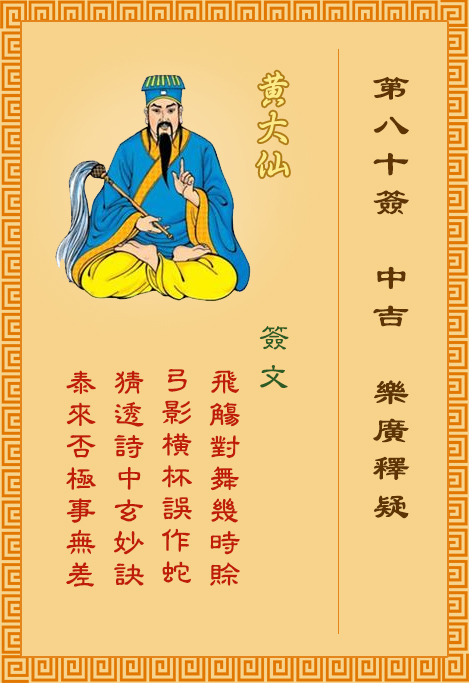 第八十簽 中吉 樂廣釋疑
黃大仙
簽文
飛觴對舞幾時賒
弓影橫杯誤作蛇
猜透詩中玄妙訣
泰來否極事無差